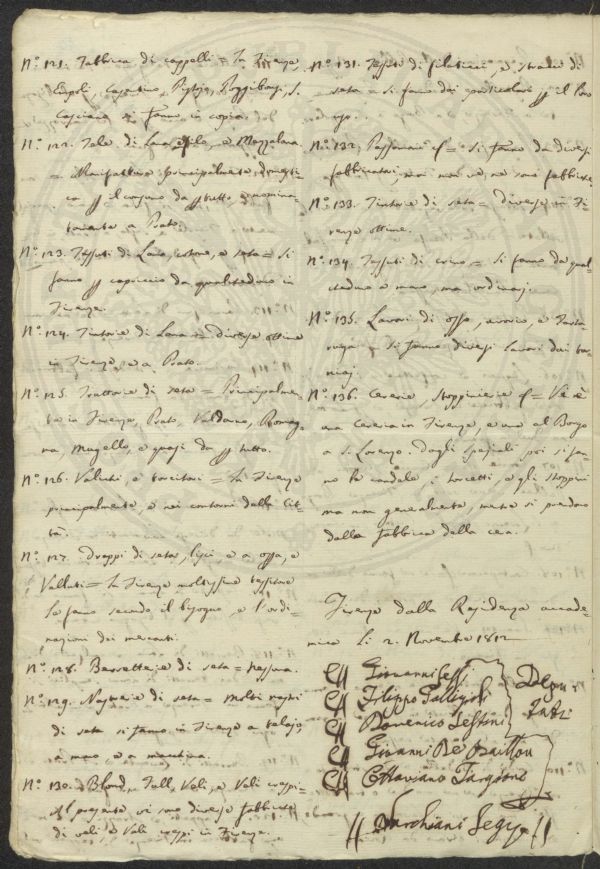 N.º 121. Fabbrica di cappelli = In Firenze
Empoli, Casentino, Pistoja, Poggibonsi, S.
Casciano = fanno in copia.
N.º 122. Tele di Lana, e filo, o Mezzelane
= Manifattura principalmente domesti-
ca il consumo da tutto e nomina-
tamente a Prato.
N.º 123. Tessuti di Lana, cotone, e seta = Si
fanno capriccio da qualcheduno in
Firenze.
N.º 124. Tintorie di Lana = diverse ottime
in Firenze, e a Prato.
N.º 125. Trattorie di seta = Principalmen-
te in Firenze, Prato, Valdarno, Romag-
na, Mugello, e quasi da tutto.
N.º 126. Valichi, e torcitori = In Firenze
principalmente, e nei contorni della Cit-
tà.
N.º 127. Drappi di seta, lisci e a opra, e
Velluti = In Firenze moltissime tessitore
lo fanno secondo il bisogno, e l'ordi-
nazioni dei mercanti.
N.º 128. Berrette di seta = nessuna.
N.º 129. Nastrerie di seta = Molti nastri
di seta si fanno in Firenze a telajo,
a mano e a macchina.
N.º 130. Blond, Tull, Veli, e Veli crespi =
Al presente vi sono diverse fabbriche
di veli, e Veli crespi in Firenze.
N.º 131. Tessuti di filaticci, e stracci di
seta = si fanno dai particolari il loro
uso.
N.º 132. Passamani = Si fanno da diversi
fabbricatori, ma non ve ne sono fabbriche.
N.º 133. Tintorie di seta = diverse in Fi-
renze ottime.
N.º 134. Tessuti di crino = si fanno da qual-
cheduno a mano, ma ordinarj.
N.º 135. Lavori di osso, avorio, e Tarta-
ruga = si fanno diversi lavori dai tor-
niaj.
N.º 136. Cererie, stoppinerie = Ve n'è
una Cereria in Firenze, e una al Borgo
a S. Lorenzo. Dagli speziali poi si fan-
no le candele, i torcetti, e gli stoppini
ma non generalmente, mentre si prendono
dalla fabbrica della cera.
Firenze dalla Residenza accade-
mica li 2. Novembre 1812
Giovanni Lessi
Filippo Gallizioli
Domenico Sestini
Giovanni De Baillou
Ottaviano Targioni
Depu-
tati
Marchiani Segr.